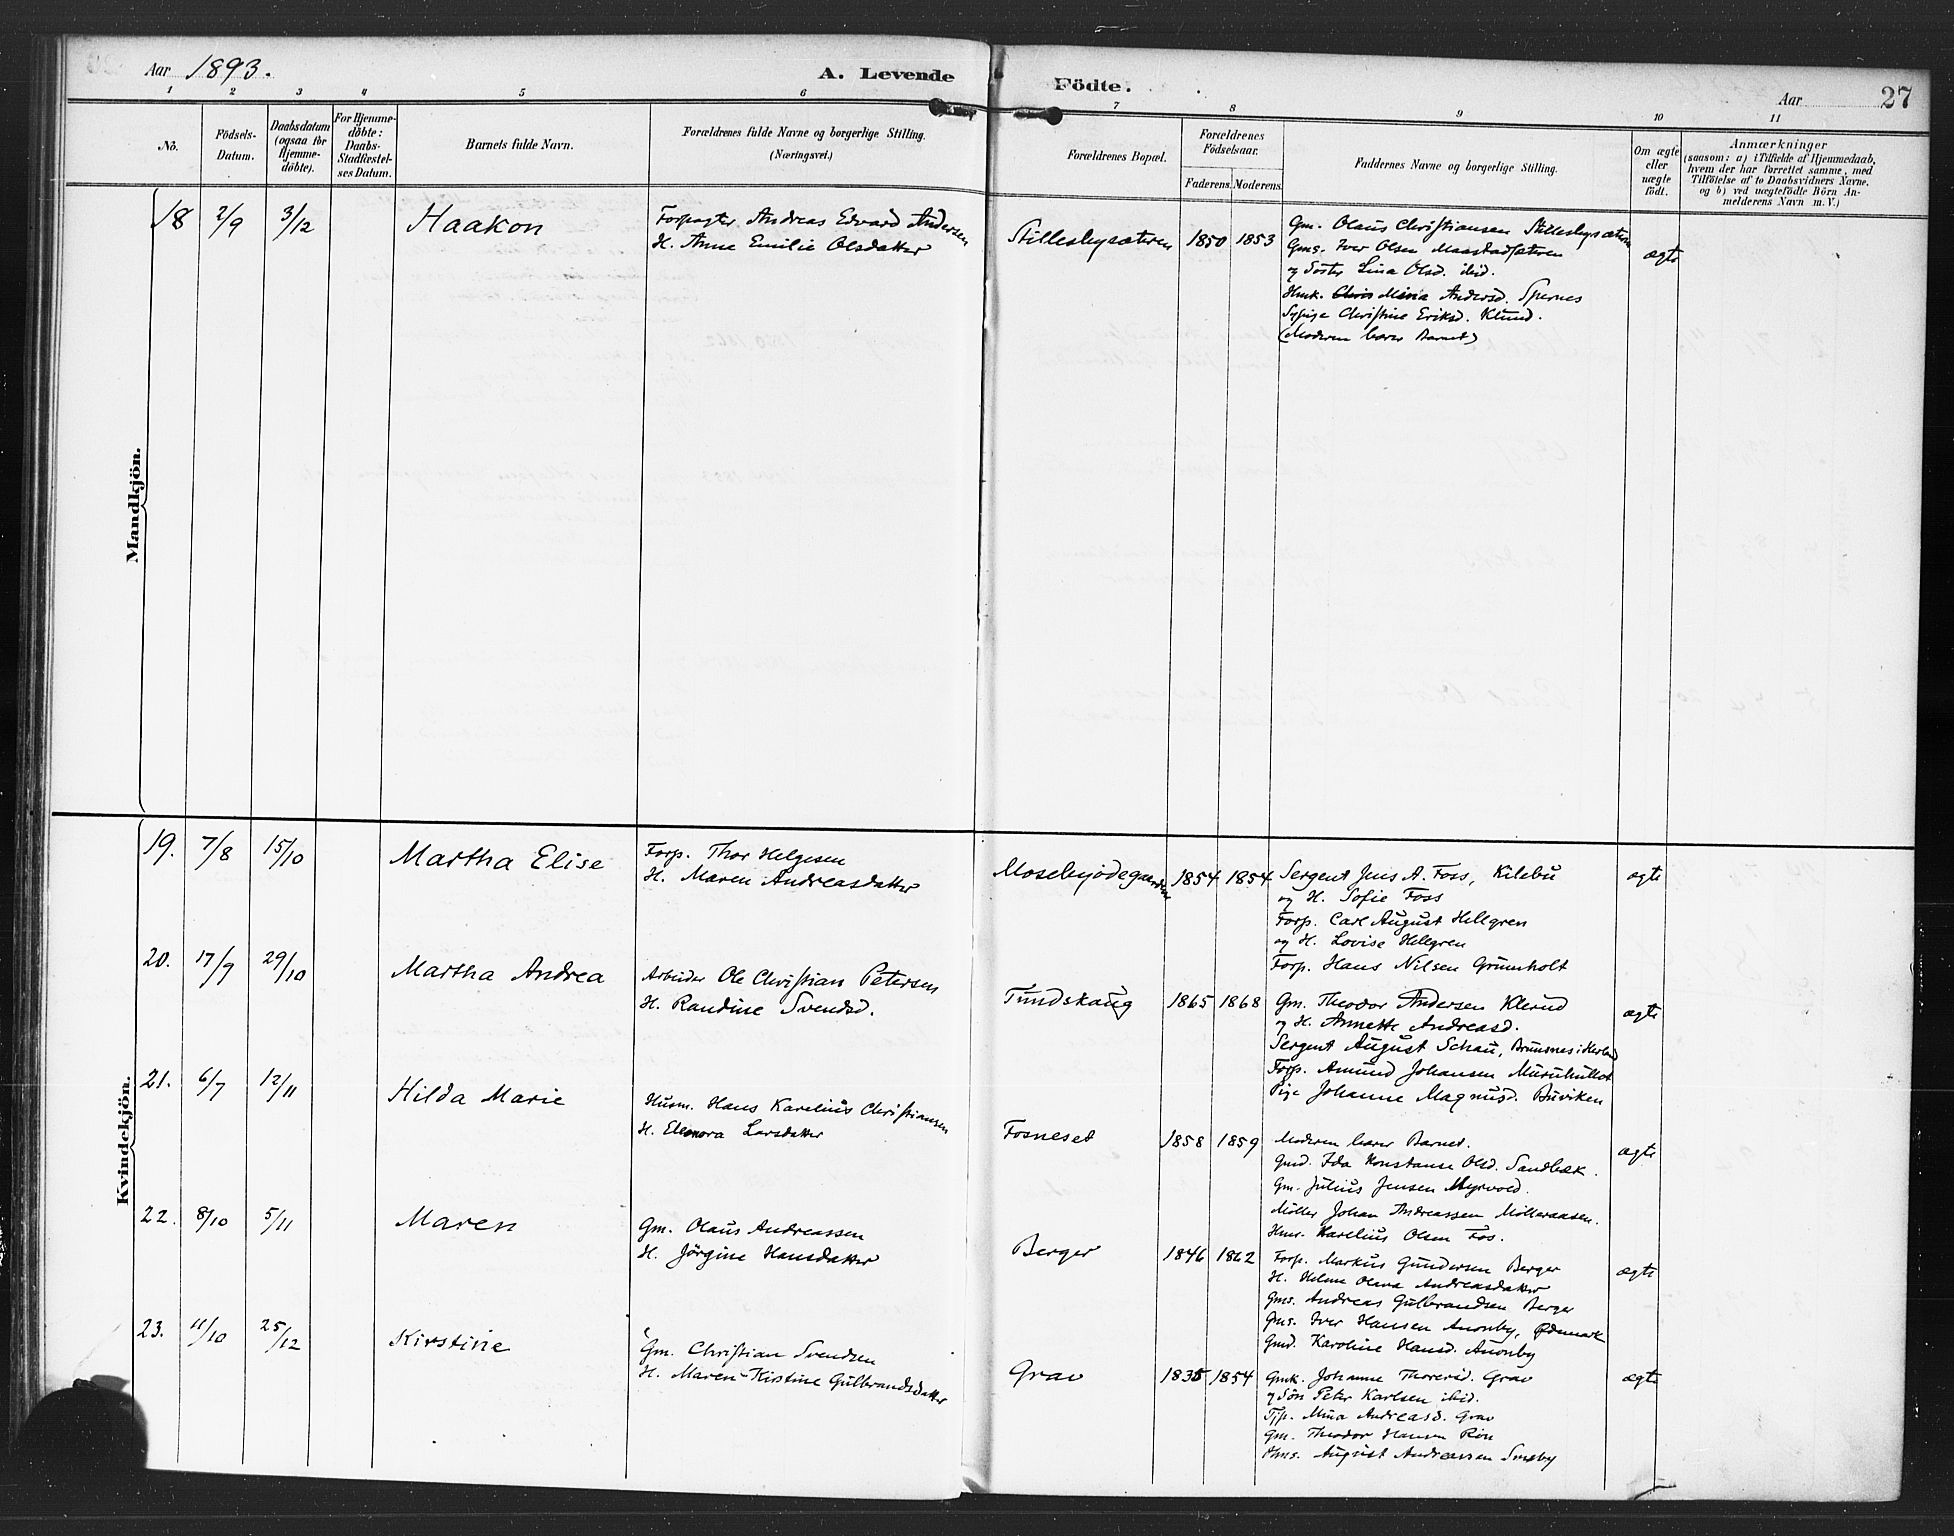 Aar 1893.
A. Levende Födte.
Aar 27
1 2 3 4 5 6 7 8 9 10 11
No.
Födsels-Datum.
Daabsdatum (ogsaa for Hjemme-döbte).
For Hjemme-döbte: Daabs-Stadfæstel-ses Datum.
Barnets fulde Navn.
Forældrenes fulde Navne og borgerlige Stilling. (Næringsvei.)
Forældrenes Bopæl.
Forældrenes Födselsaar.
Faderens. Moderens.
Faddernes Navne og borgerlige Stilling.
Om ægte eller uægte födt.
Anmærkninger
(saasom: a) i Tilfælde af Hjemmedaab,
hvem der har forrettet samme, med
Tilföielse af to Daabsvidners Navne.
og b) ved uægtefödte Börn An-
melderens Navn m. V.)
Mandkjön.
18 2/9 3/12 Haakon
Forpagter Andreas Edvard Andersen
H. Anne Emilie Olsdatter
Stillesbysæteren 1850 1853
Gm. Olaus Christiansen Stillesbysæteren
Gms. Iver Olsen Maastadsæteren
og Søster Lina Olsd. ibid.
Hmk. Maria Andersd. Spernes
Sypige Christine Eriksd. Klund.
(Moderen bærer Barnet)
ægte
Kvindekjön.
19. 7/8 15/10 Martha Elise
Forp. Thor Helgesen
H. Maren Andreasdatter
Mosebyødegaarden 1854 1854
Sergent Jens A. Foss, Kilebu
og H. Sofie Foss
Forp. Carl August Hellgren
og H. Lovise Hellgren
Forp. Hans Nilsen Grünholt
ægte
20. 17/9 29/10 Martha Andrea
Arbeider Ole Christian Petersen
H. Randine Svendsd.
Tundskaug 1865 1868
Gm. Theodor Andersen Klerud
og H. Annette Andreasd.
Sergent August Schau, Brunsnes i
Forp. Amund Johansen
Pige Johanne Magnusd. Buviken
ægte
21. 6/7 12/11 Hilda Marie
Husm. Hans Karelius Christiansen
H. Eleonora Larsdatter
Fosneset 1858 1859
Moderen bærer Barnet.
Gmd. Ida Konstanse Olsd. Sandbæk.
Gm. Julius Jensen Myrvold.
Møller Johan Andreassen Mølleraasen.
Hms. Karelius Olsen Fos.
ægte
22. 8/10 5/11 Maren
Gm. Olaus Andreassen
H. Jörgine Hansdatter
Berger 1846 1862
Forp. Markus Gundersen Berger
H. Helene Olava Andreasdatter
Gms. Andreas Gulbrandsen Berger
Gms. Iver Hansen Anonby, Ødemark
Gmd. Karoline Hansd. Anonby
ægte
23. 11/10 25/12 Kirstine
Gm. Christian Svendsen
H. Maren Kistine Gulbrandsdatter
Grav 1835 1854
Gmk. Johanne Thoresd. Grav
og Søn Peter Karlsen ibid.
Tjp. Mina Andreasd. Grav
Gm. Theodor Hansen
Gms. August Andreassen
ægte